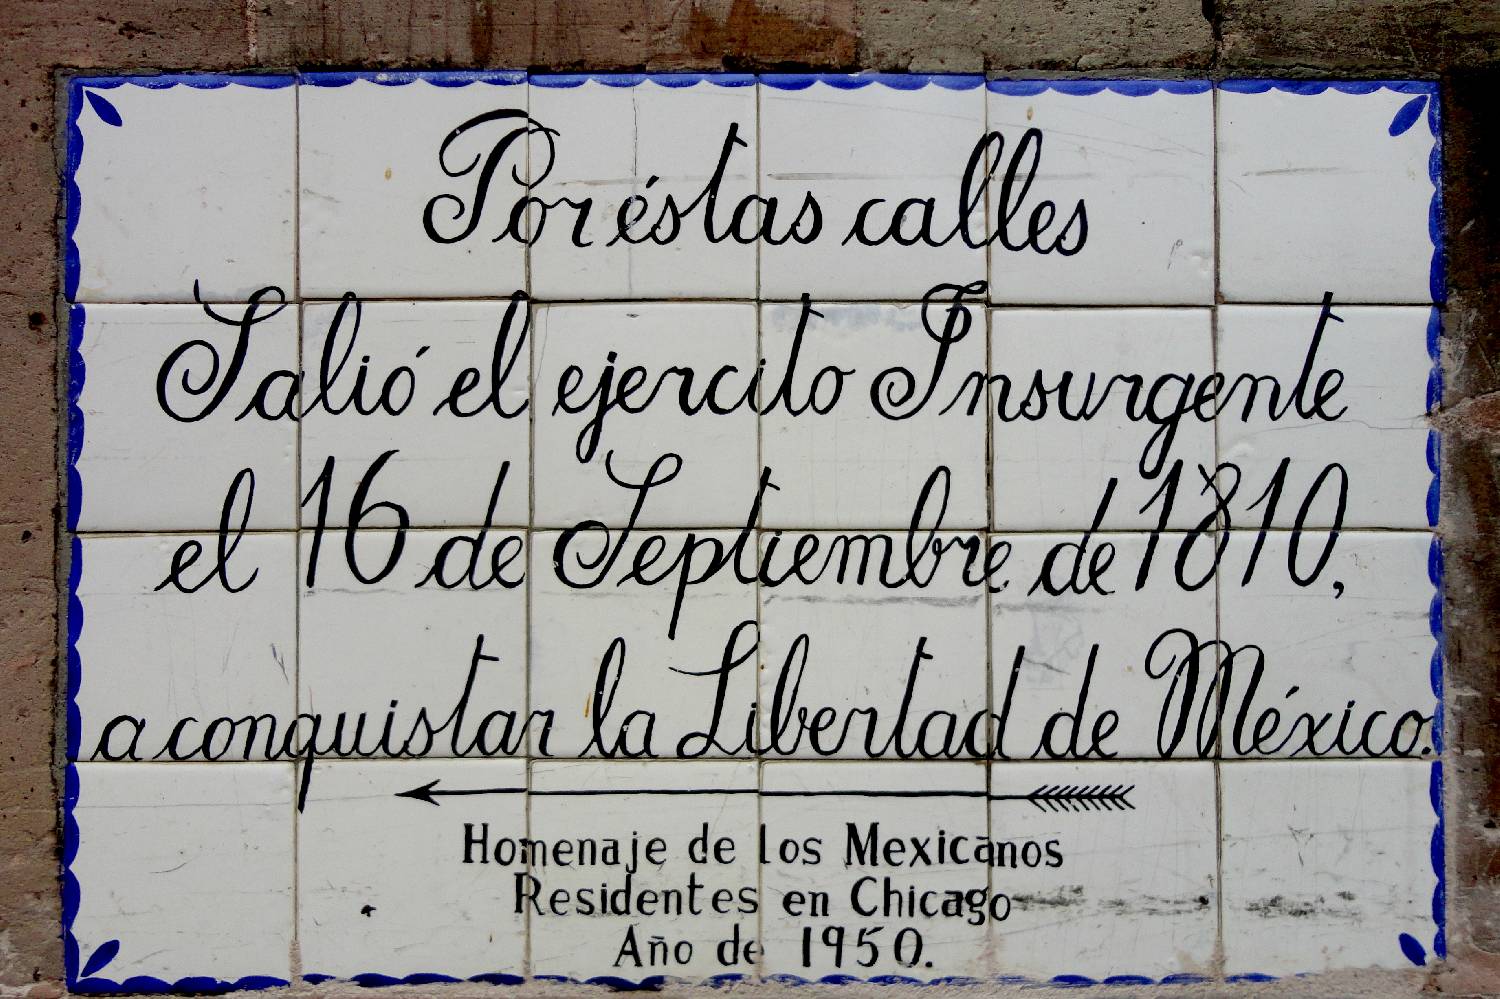 Por éstas calles
Salió el ejercito Insurgente
el 16 de Septiembre de 1810,
a conquistar la Libertad de México.
Homenaje de los Mexicanos
Residentes en Chicago
Año de 1950.